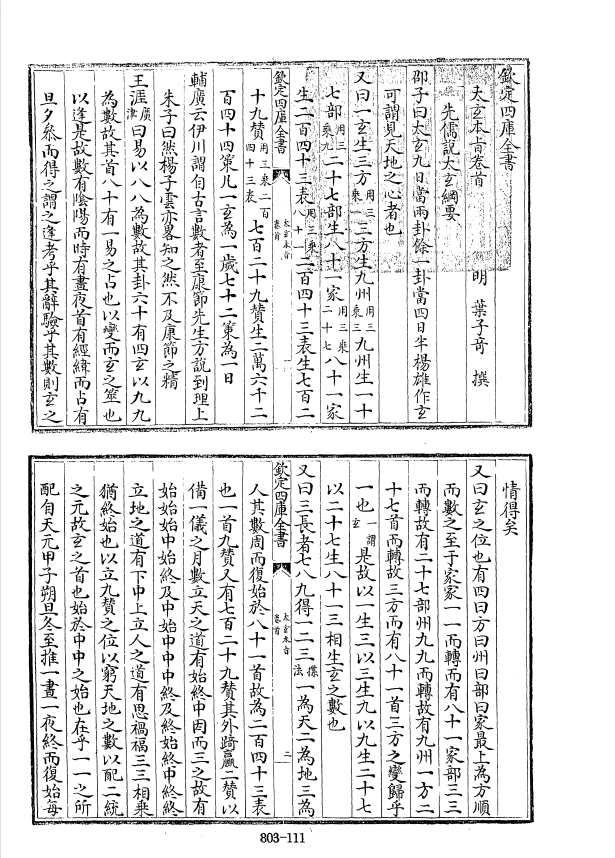 欽定四庫全書
太玄本㫖卷首
明 葉子奇 撰
先儒說太玄綱要
邵子曰太玄九日當兩卦餘一卦當四日半楊雄作玄
可謂見天地之心者也
又曰一玄生三方用三乘一三方生九州用三乘三九州生二十
七部用三乘九二十七部生八十一家用三乘二十七八十一家
生二百四十三表用三乘八十一二百四十三表生七百二
十九贊用三乘二百四十三表七百二十九贊生二萬六千二
百四十四策凡一玄為一歲七十二策為一日
輔廣云伊川謂自古言數者至康節先生方說到理上
朱子曰然楊子雲亦畧知之然不及康節之精
王涯廣津曰易以八八為數故其卦六十有四玄以九九
為數故其首八十有一易之占也以變而玄之筮也
以逢是故數有陰陽而時有晝夜首有經緯而占有
旦夕叅而得之謂之逢考乎其辭驗乎其數則玄之
欽定四庫全書
太玄本㫖
卷首
一
情得矣
又曰玄之位也有四曰方曰州曰部曰家最上為方順
而數之至于家家一一而轉而有八十一家部三三
而轉故有二十七部州九九而轉故有九州一方二
十七首而轉故三方而有八十一首三方之變歸乎
一也一謂玄是故以一生三以三生九以九生二十七
以二十七生八十一三相生玄之數也
又曰三長者七八九得一二三揲法一為天二為地三為
人其數周而復始於八十一首故為二百四十三表
也一首九贊又有七百二十九贊其外踦嬴二贊以
備一儀之月數立天之道有始終中因而三之故有
始始始中始終及中始中中中終及終始終中終終
立地之道有下中上立人之道有思禍福三三相乘
猶終始也以立九贊之位以窮天地之數以配二統
之元故玄之首也始於中中之始也在乎一一之所
配自天元甲子朔旦冬至推一晝一夜終而復始每
欽定四庫全書
太玄本㫖
卷首
二
803-111